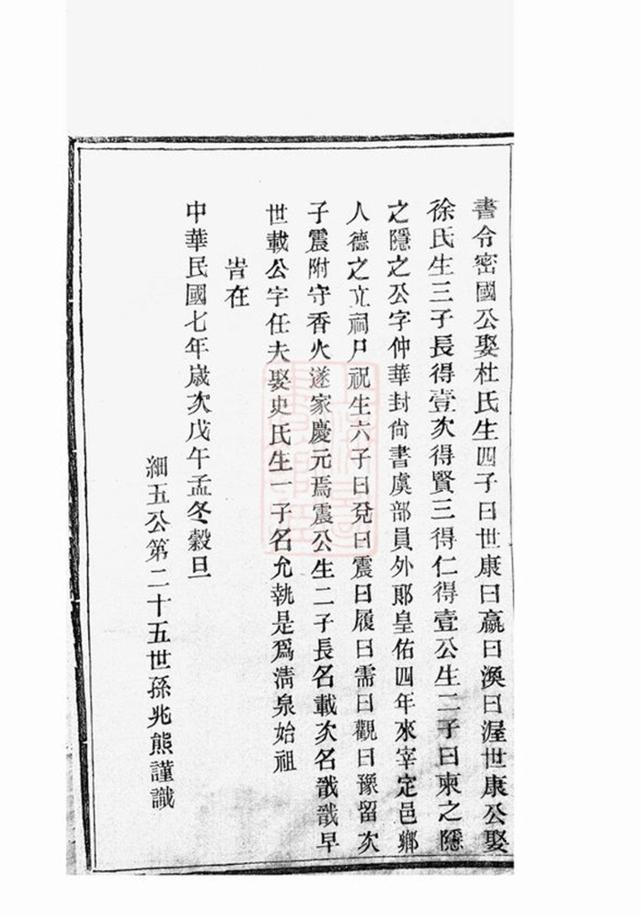 書令密國公娶杜氏生四子曰世康曰嬴曰渙曰渥世康公娶
徐氏生三子長得壹次得賢三得仁得壹公生二子曰柬之隱
之隱之公字仲華封尙書虞部員外郞皇佑四年來宰定邑鄉
人德之立祠尸祝生六子曰兌曰震曰履曰需曰觀曰豫留次
子震附守香火遂家慶元焉震公生二子長名載次名戩戩早
世載公字任夫娶史氏生一子名允執是爲淸泉始祖
旹在
中華民國七年歲次戊午孟冬穀旦
細五公第二十五世孫兆熊謹識